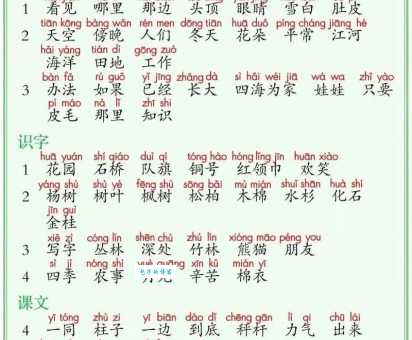 1 看见 哪里 那边 头顶 眼睛 雪白 肚皮
tiān kōng bàng wǎn rén men dōng tiān huā duǒ píng cháng jiāng hé
2 天空 傍晚 人们 冬天 花朵 平常 江河
hǎi yáng tián dì gōng zuò
海洋 田地 工作
bàn fǎ rú guǒ yǐ jīng zhǎng dà sì hǎi wéi jiā wá wa zhǐ yào
3 办法 如果 已经 长大 四海为家 娃娃 只要
pí máo nà lǐ zhī shi
皮毛 那里 知识
识字
huā yuán shí qiáo duì qí tóng hào hóng lǐng jīn huān xiào
1 花园 石桥 队旗 铜号 红领巾 欢笑
yáng shù shù yè fēng shù sōng bǎi mù mián shuǐ shān huà shí
2 杨树 树叶 枫树 松柏 木棉 水杉 化石
jīn guì
金桂
xiě zì cóng lín shēn chù zhú lín xióng māo péng you
3 写字 丛林 深处 竹林 熊猫 朋友
sì jì nóng shì yuè guāng xīn kǔ mián yī
4 四季 农事 辛苦 棉衣
课文
yī tóng zhù zi yī biān dào dǐ chèng gǎn lì qi chū lái
4 一同 柱子 一边 到底 秤杆 力气 出来